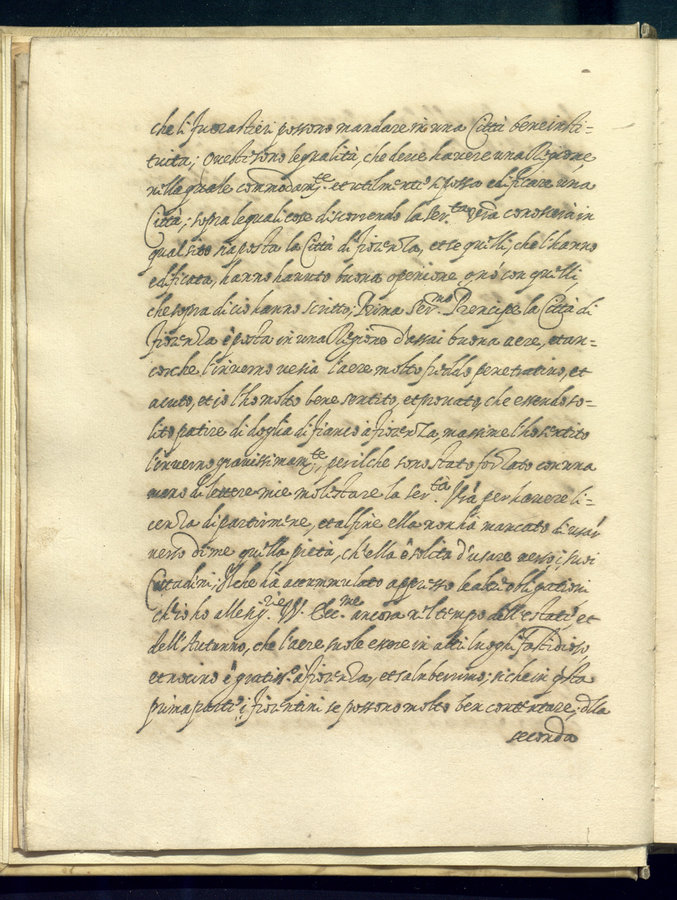 che li forastieri possono mandare in una Città bene insti=
tuita; Queste sono le qualità, che deve havere una Regione,
nella quale commodam.te et utilmente si possa edificare una
Città; sopra le quali cose discorrendo la Ser.ta V̄ra conoscerà in
qual sito sia posta la Città di fiorenza, et se quelli, che l'hanno
edificata, hanno havuto buona openione, ò nò con quelli,
che sopra di ciò hanno scritto; Prima Ser.mo Prencipe la Città di
fiorenza è posta in una Regione d'assai buona aere, et an=
corche l'inverno ve sia l'aere molto freddo penetrativo, et
acuto, et io l'ho molto bene sentito, et provato, che essendo so=
lito patire di doglia di fianco a fiorenza, massime l'ho sentito
l'inverno gravissimam.te, per il che sono stato forzato con una
mano di lettere mie molestare la Ser.tà V̄ra per havere li=
cenza di partirmene, et alfine ella non hà mancato di usar
verso di me quella pietà, ch'ella è solita d'usare verso i suoi
Cittadini; Il che ha accummulato appresso le altre obligationi
ch'io ho alle V. Ecc.me ancora nel tempo dell'estate et
dell'Autunno, che l'aere suole essere in altri luoghi fastidioso
et nocivo è gratiss.o à fiorenza, et saluberrimo; si che in q̄sta
prima parte i fiorentini se possono molto ben contentare; dlla
seconda